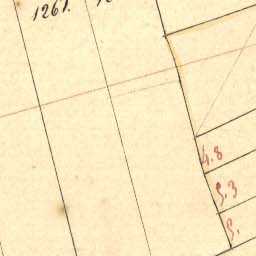 1261.
4.8
5.3
5.